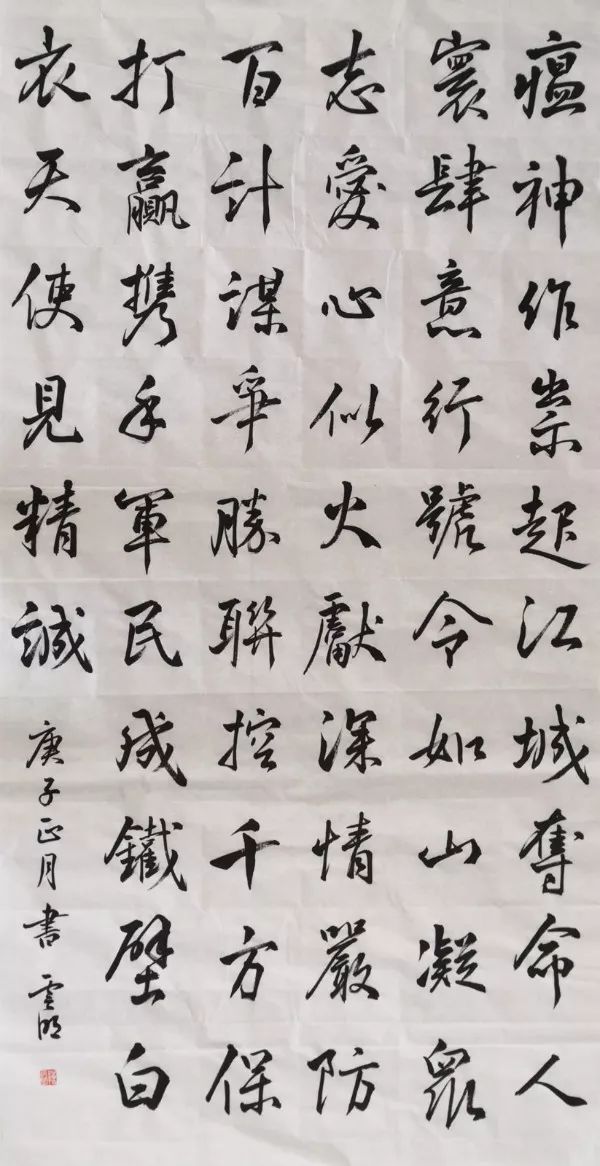 瘟神作祟起江城奪命人
寰肆意行號令如山凝眾
志愛心似火獻深情嚴防
百計謀爭勝聯控千方保
打贏攜手軍民成鐵壁白
衣天使見精誠
庚子正月書雲明